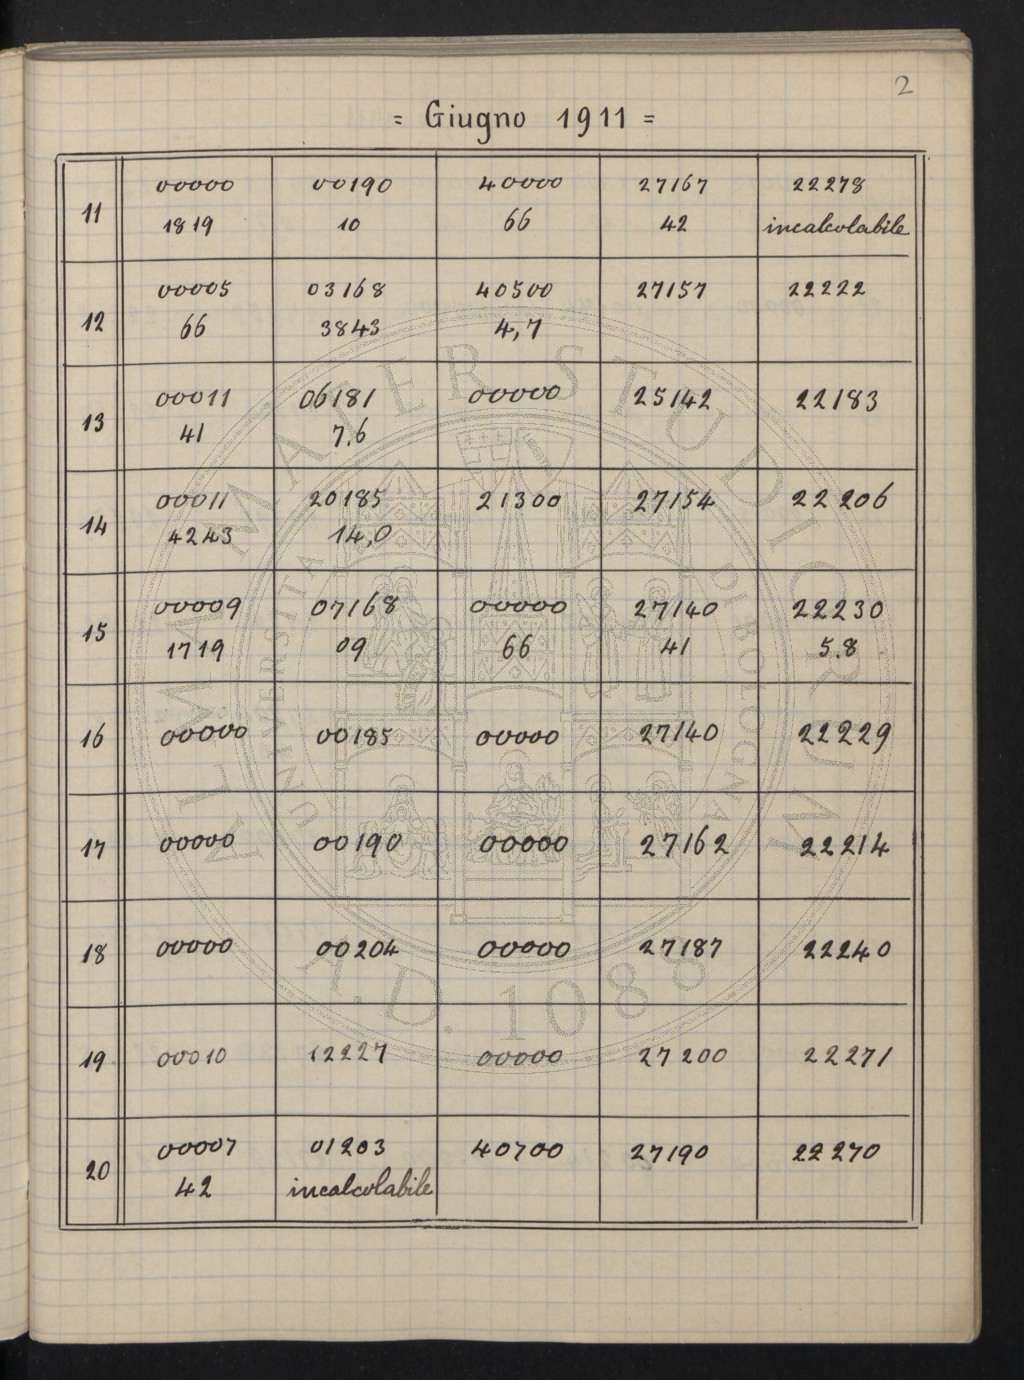 2
= Giugno 1911 =
11 00000 00190 40000 27167 22278
1819 10 66 42 incalcolabile
12 00005 03168 40500 27157 22222
66 3843 4,7
13 00011 06181 00000 25142 22183
41 7.6
14 00011 20185 21300 27154 22206
4243 14,0
15 00009 07168 00000 27140 22230
1719 09 66 41 5.8
16 00000 00185 00000 27140 22229
17 00000 00190 00000 27162 22214
18 00000 00204 00000 27187 22240
19 00010 12227 00000 27200 22271
20 00007 01203 40700 27190 22270
42 incalcolabile
ALMA MATER STUDIORUM
UNIVERSITÀ DI BOLOGNA
A.D. 1088